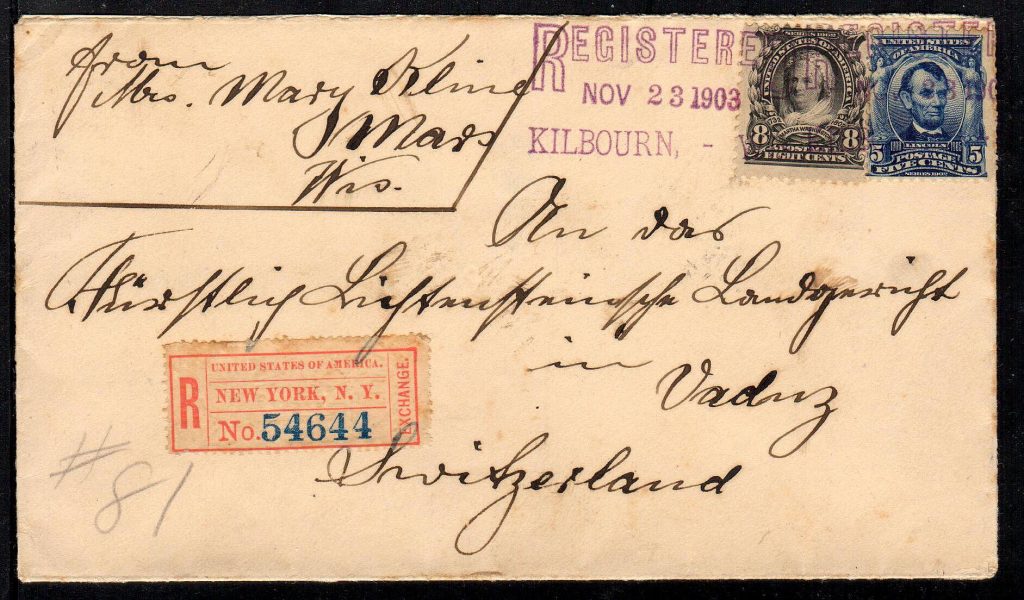 from
Mrs. Mary Kline
Mars
Wis.
REGISTERED
NOV 23 1903
KILBOURN, -
SERIES 1902
UNITED STATES OF AMERICA
8 8
EIGHT CENTS
UNITED STATES
OF AMERICA
LINCOLN
5 POSTAGE 5
FIVE CENTS
SERIES 1902
An das
Fürstlich Lichtensteinsche Landgericht
in
Vaduz
Switzerland
R
UNITED STATES OF AMERICA.
NEW YORK, N. Y.
No. 54644
EXCHANGE.
#
81